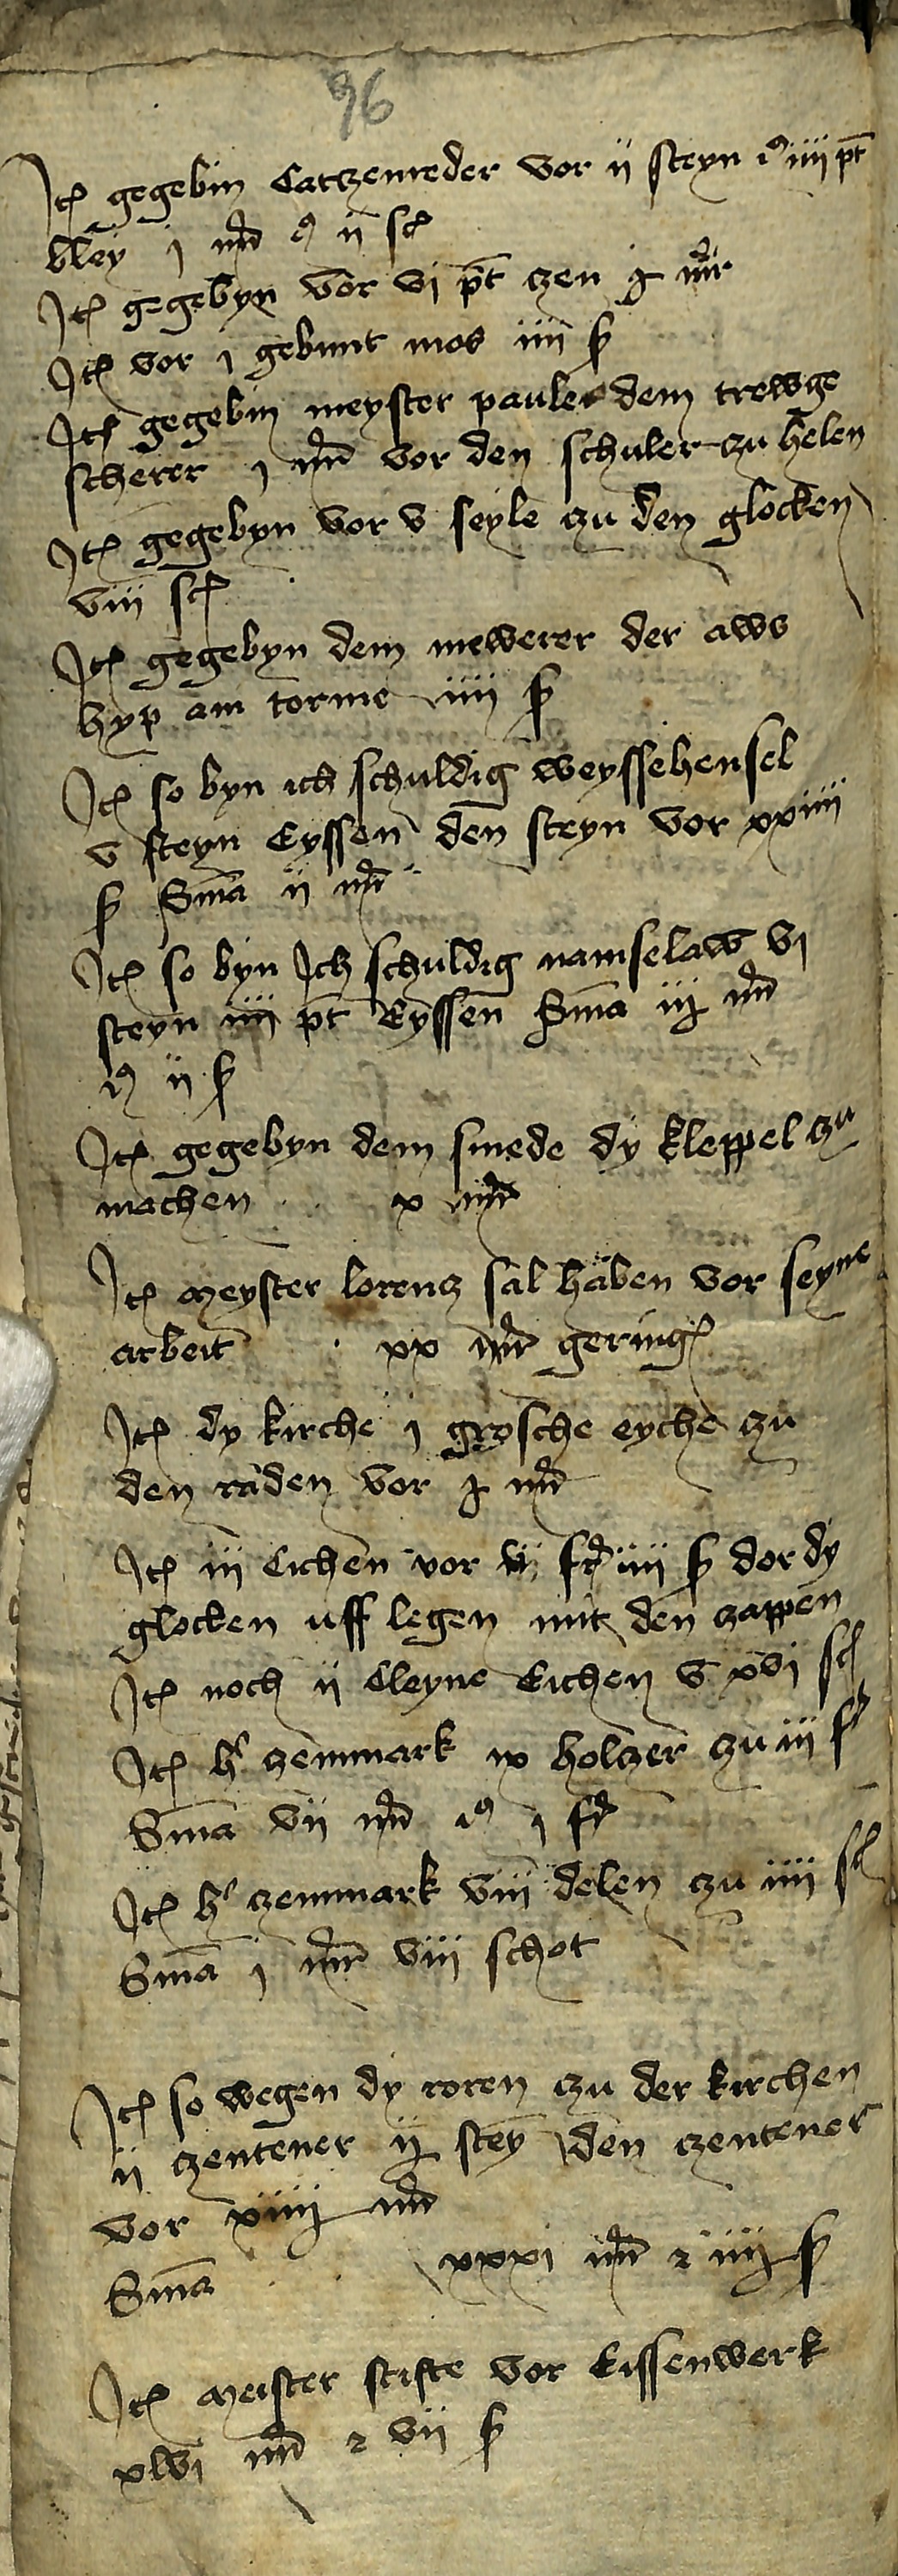 96
Itꝫ gegebin Catzenreder vor ii steyn iiii pt
bley j mr ii sc
Itꝫ gegebyn vor vi pt zen mr
Itꝫ vor j gebunt mos iiii ß
Itꝫ gegebin meyster paules dem trewge
scherer j mr vor den schuler zu helen
Itꝫ gegebyn vor v seyle zu den glocken
viii sc
Itꝫ gegebyn dem mewerer der aws
hyp am torme iiii ß
Itꝫ so byn ich schuldig weyssehensel
v steyn Eyssen den steyn vor xxiiii
ß Sma ii mr
Itꝫ so byn Ich schuldig namselaw vi
steyn iiii pt Eyssen Sma mr
ii ß
Itꝫ gegebyn dem smede dy kleppel zu
machen x mr
Itꝫ meyster lorencz sal haben vor seyne
arbeit xx mr gering
Itꝫ dy kirche j grosche eyche zu
den raden vor mr
Itꝫ iii Eichen vor iiii ß dor dy
glocken uff legen mit den zappen
Itꝫ noch ii Cleyne Eichen v xvi sc
Itꝫ h zenmark ix holzer zu iii f
Sma vii mr j f
Itꝫ h zenmark viii delen zu iiii sc
Sma j mr viii schot
Itꝫ so wegen dy roren zu der kirchen
ii zentener stey den czentener
vor mr
Sma xxxi mr ß
Itꝫ meister stifte vor Eissenwerk
xlvi mr vii ß